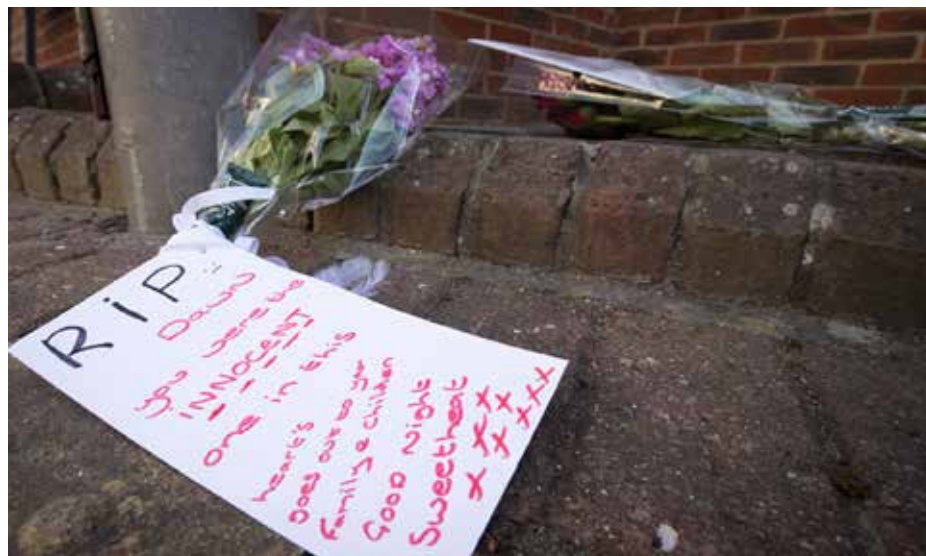 RiP :
Dawn
you were the
INNOCENT
one in this
heart's
Goes out to your
family & children
Good Night
Sweetheart
x xxx
xx
xxx